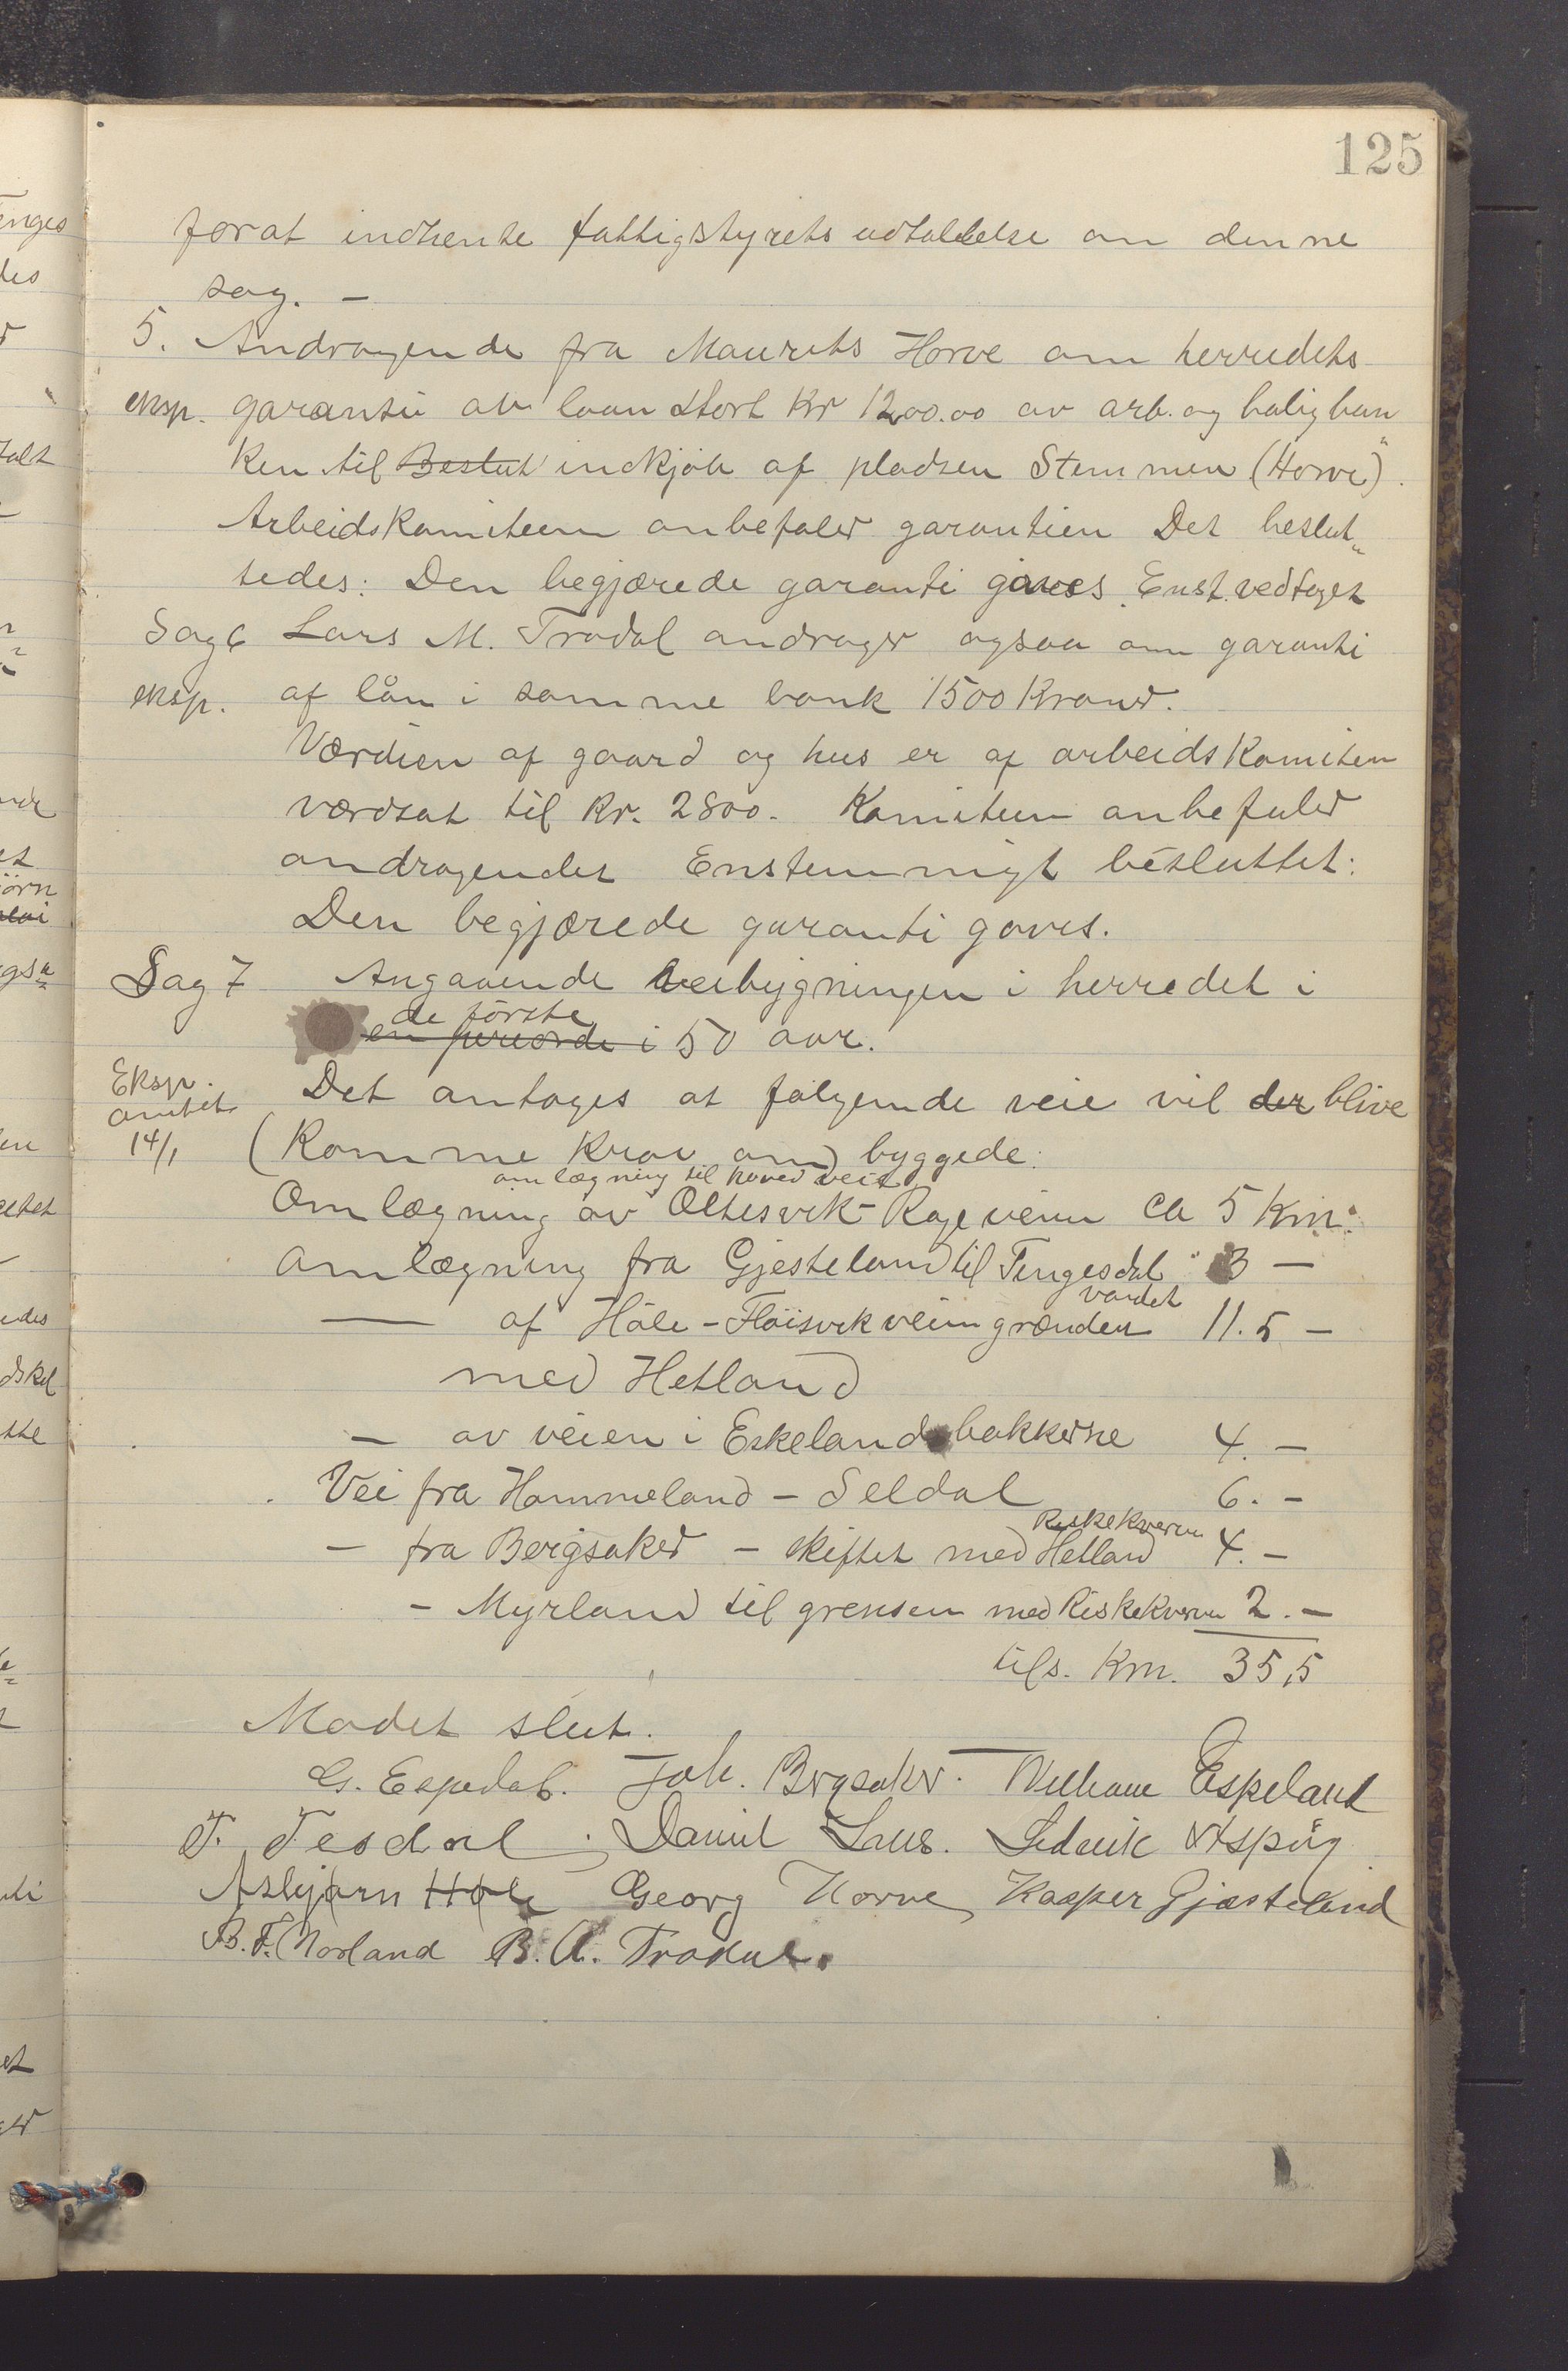 125
forat indhente fattigstyrets udtallelse om denne
sag. —
5. Andragende fra Maurits Horve om herredets
eksp. garanti av laan stort Kr 1200.00 av arb. og boligban„
ken til Beslut indkjøb af pladsen Stemmen (Horve).
Arbeidskomiteen anbefaler garantien Det beslut„
tedes: Den begjærede garanti gaves. Enst. vedtaget
Sag 6 Lars M. Tradal andrager ogsaa om garanti
eksp. af lån i samme bank 1500 Kroner.
Værdien af gaard og hus er af arbeidskomiteen
værdsat til Kr. 2800. Komiteen anbefaler
andragendet Enstemmigt besluttet:
Den begjærede garanti gaves.
Sag 7 Angaaende veibygningen i herredet i
de første
en periorde i 50 aar.
Eksp. Det antages at følgende veie vil der blive
amtet
14/1 (Komme krav om) byggede:
omlægning til hovedvei
Omlægning av Oltesvik-Rageveien ca 5 Km.
Omlægning fra Gjesteland til Tengesdal " 3 —
vandet
— af Høle-Fløisvikveien grænden 11.5 —
med Hetland
— av veien i Eskelandsbakkerne 4. —
Vei fra Hommeland — Seldal 6. —
Riskekvern
— fra Bergsaker — skiftet med Hetland 4. —
— Myrland til grensen med Riskekvern 2. —
tils. Km. 35,5
Mødet slut.
G. Espedal. Joh. Bergsaker. Vilhelm Espeland
T. Tesdal. Daniel Laus. Ludvik Aspøy
Asbjørn Høle Georg Horve Kasper Gjesteland
B. F. Norland B. A. Tradal.